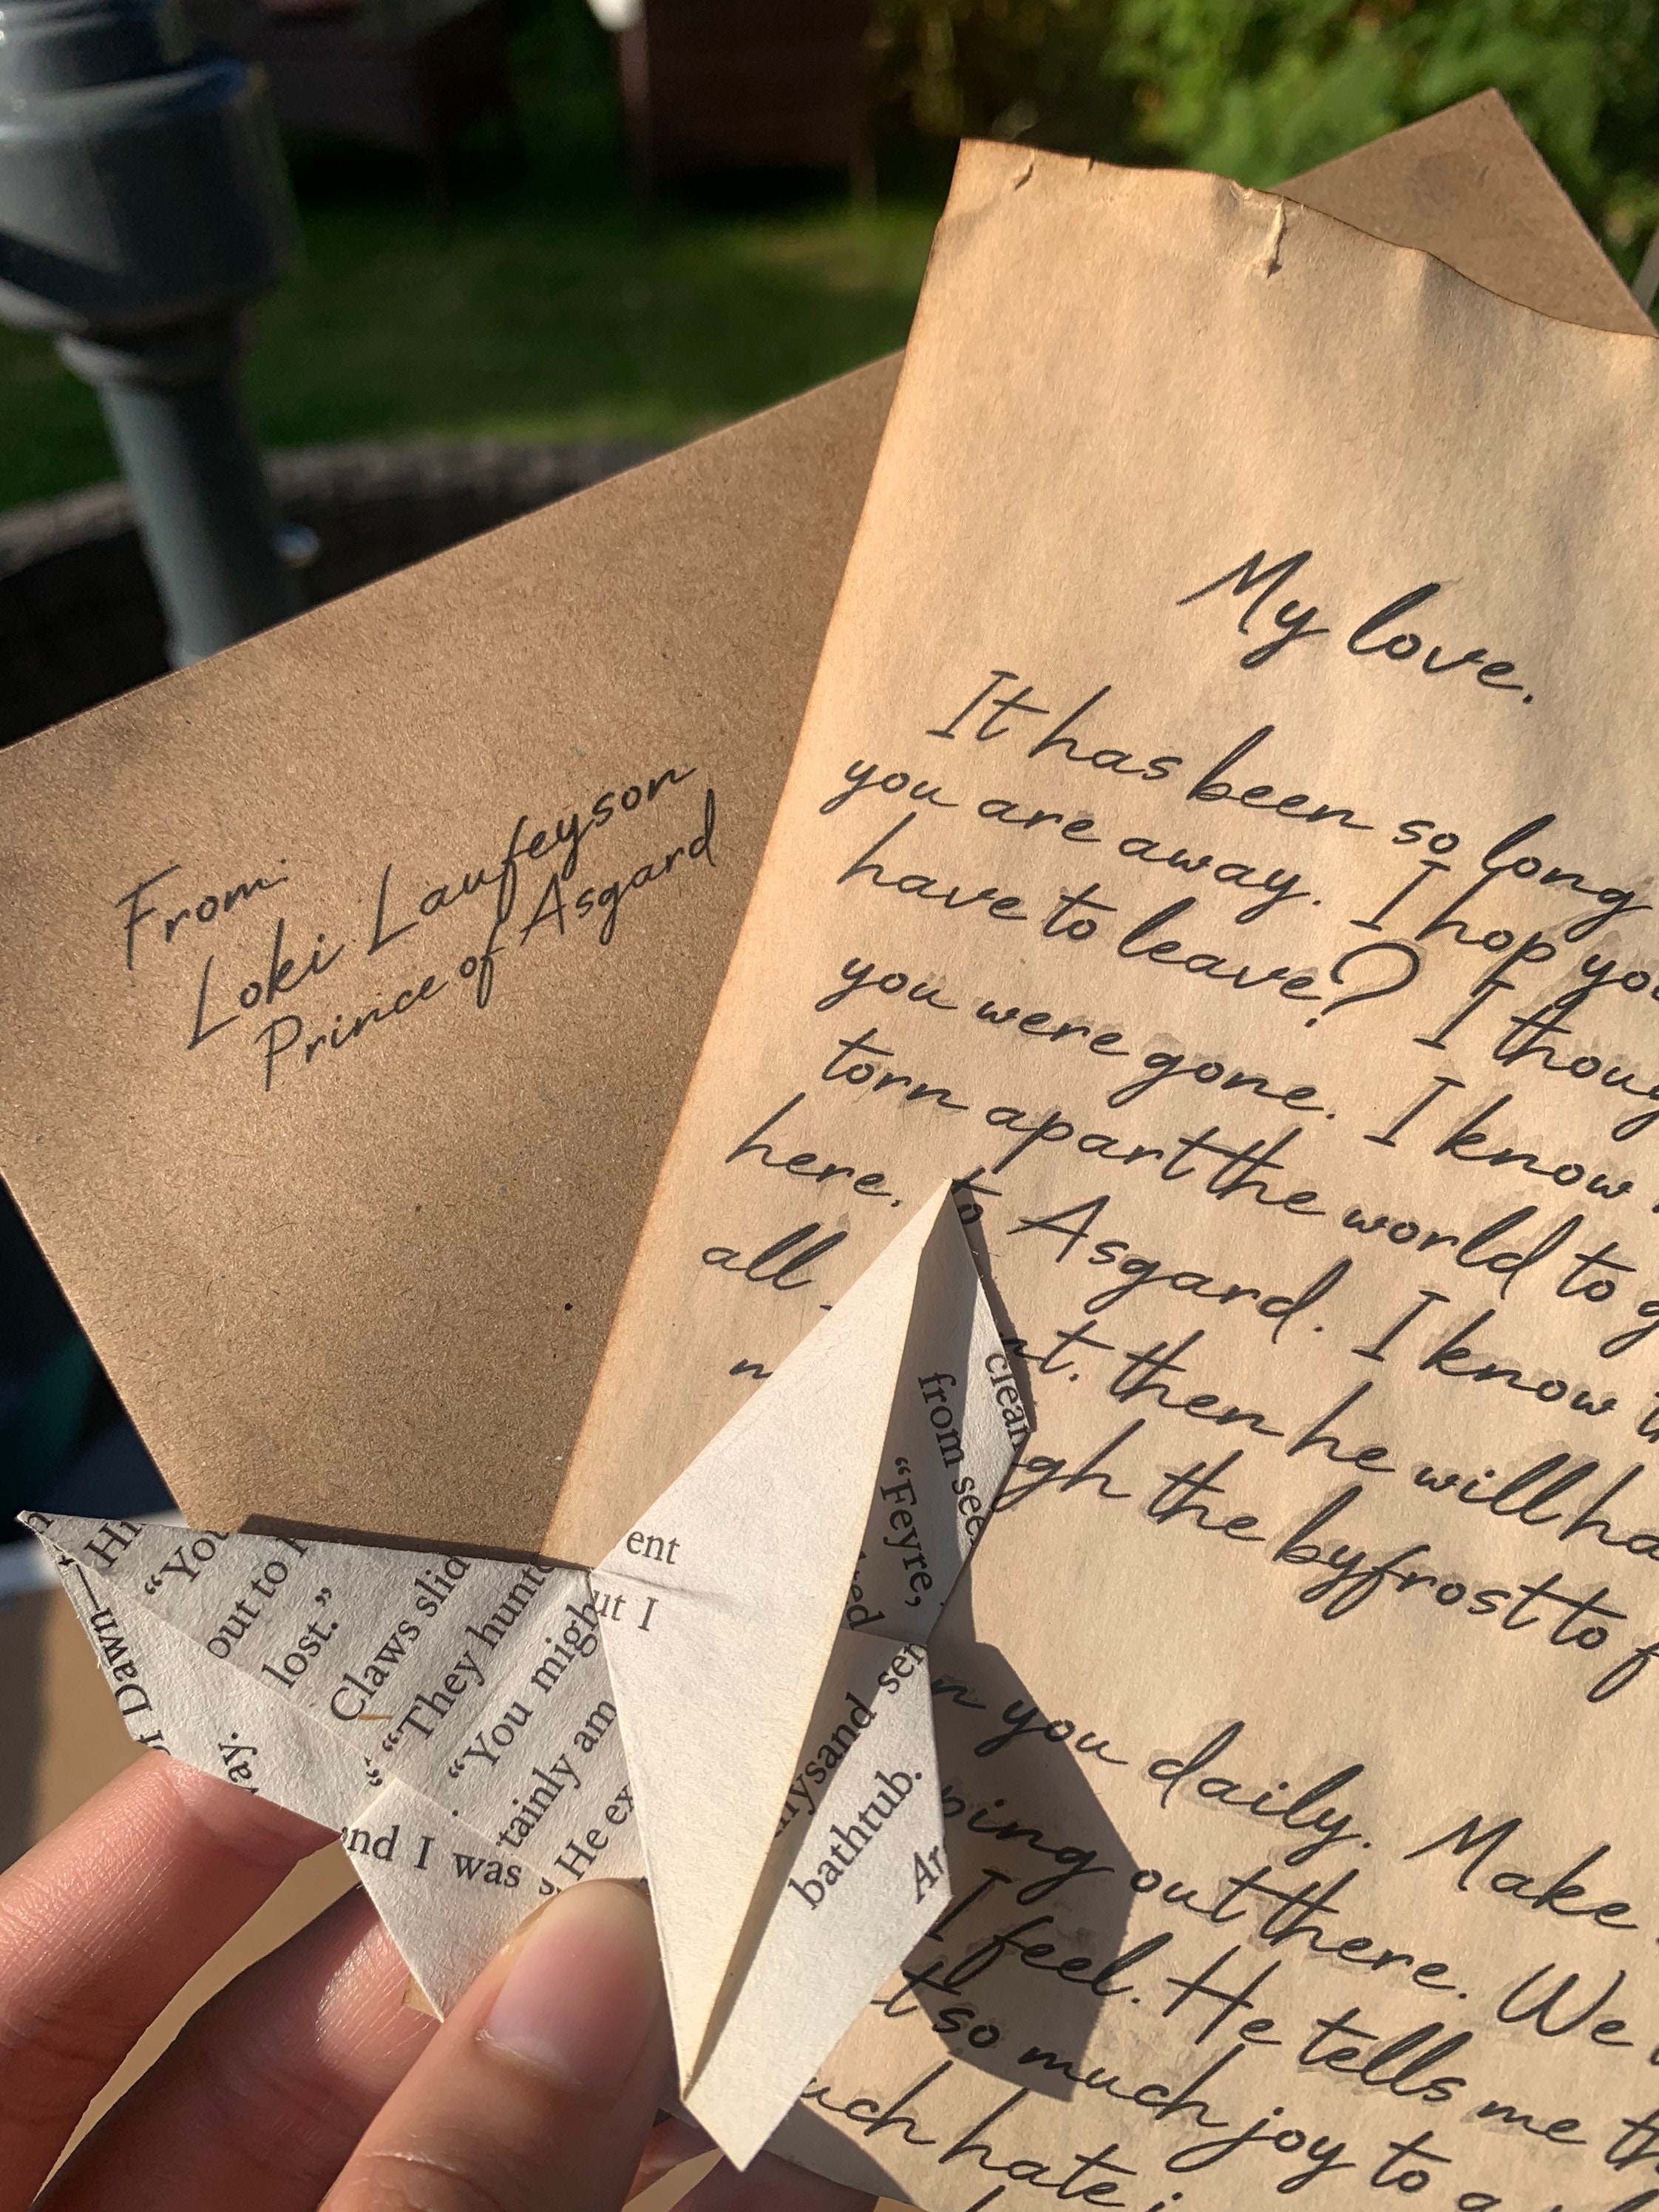 From:
Loki Laufeyson
Prince of Asgard
My love.
It has been so long
you are away. I hop you
have to leave? I thoug
you were gone. I know
torn apart the world to g
here. to Asgard. I know th
all
nt. then he will ha
gh the byfrost to f
n you daily. Make
ping out there. We
I feel. He tells me th
t so much joy to a
uch hate i
Hi
"You
out to
lost."
Claws slid
"They hunte
"You migh
tainly am
He ex
of Dawn—
way.
and I was
ent
ut I
clean
from see
"Feyre,
red
sen
lysand
bathtub.
Ar